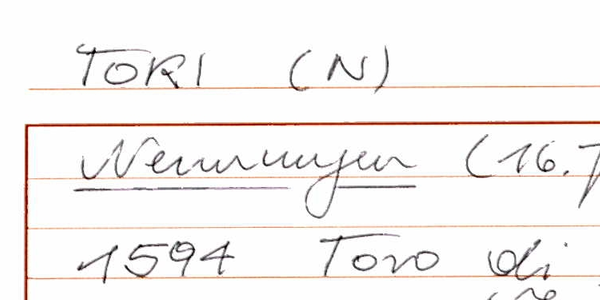 TORI (N)
Nennungen (16.
1594 Toro di